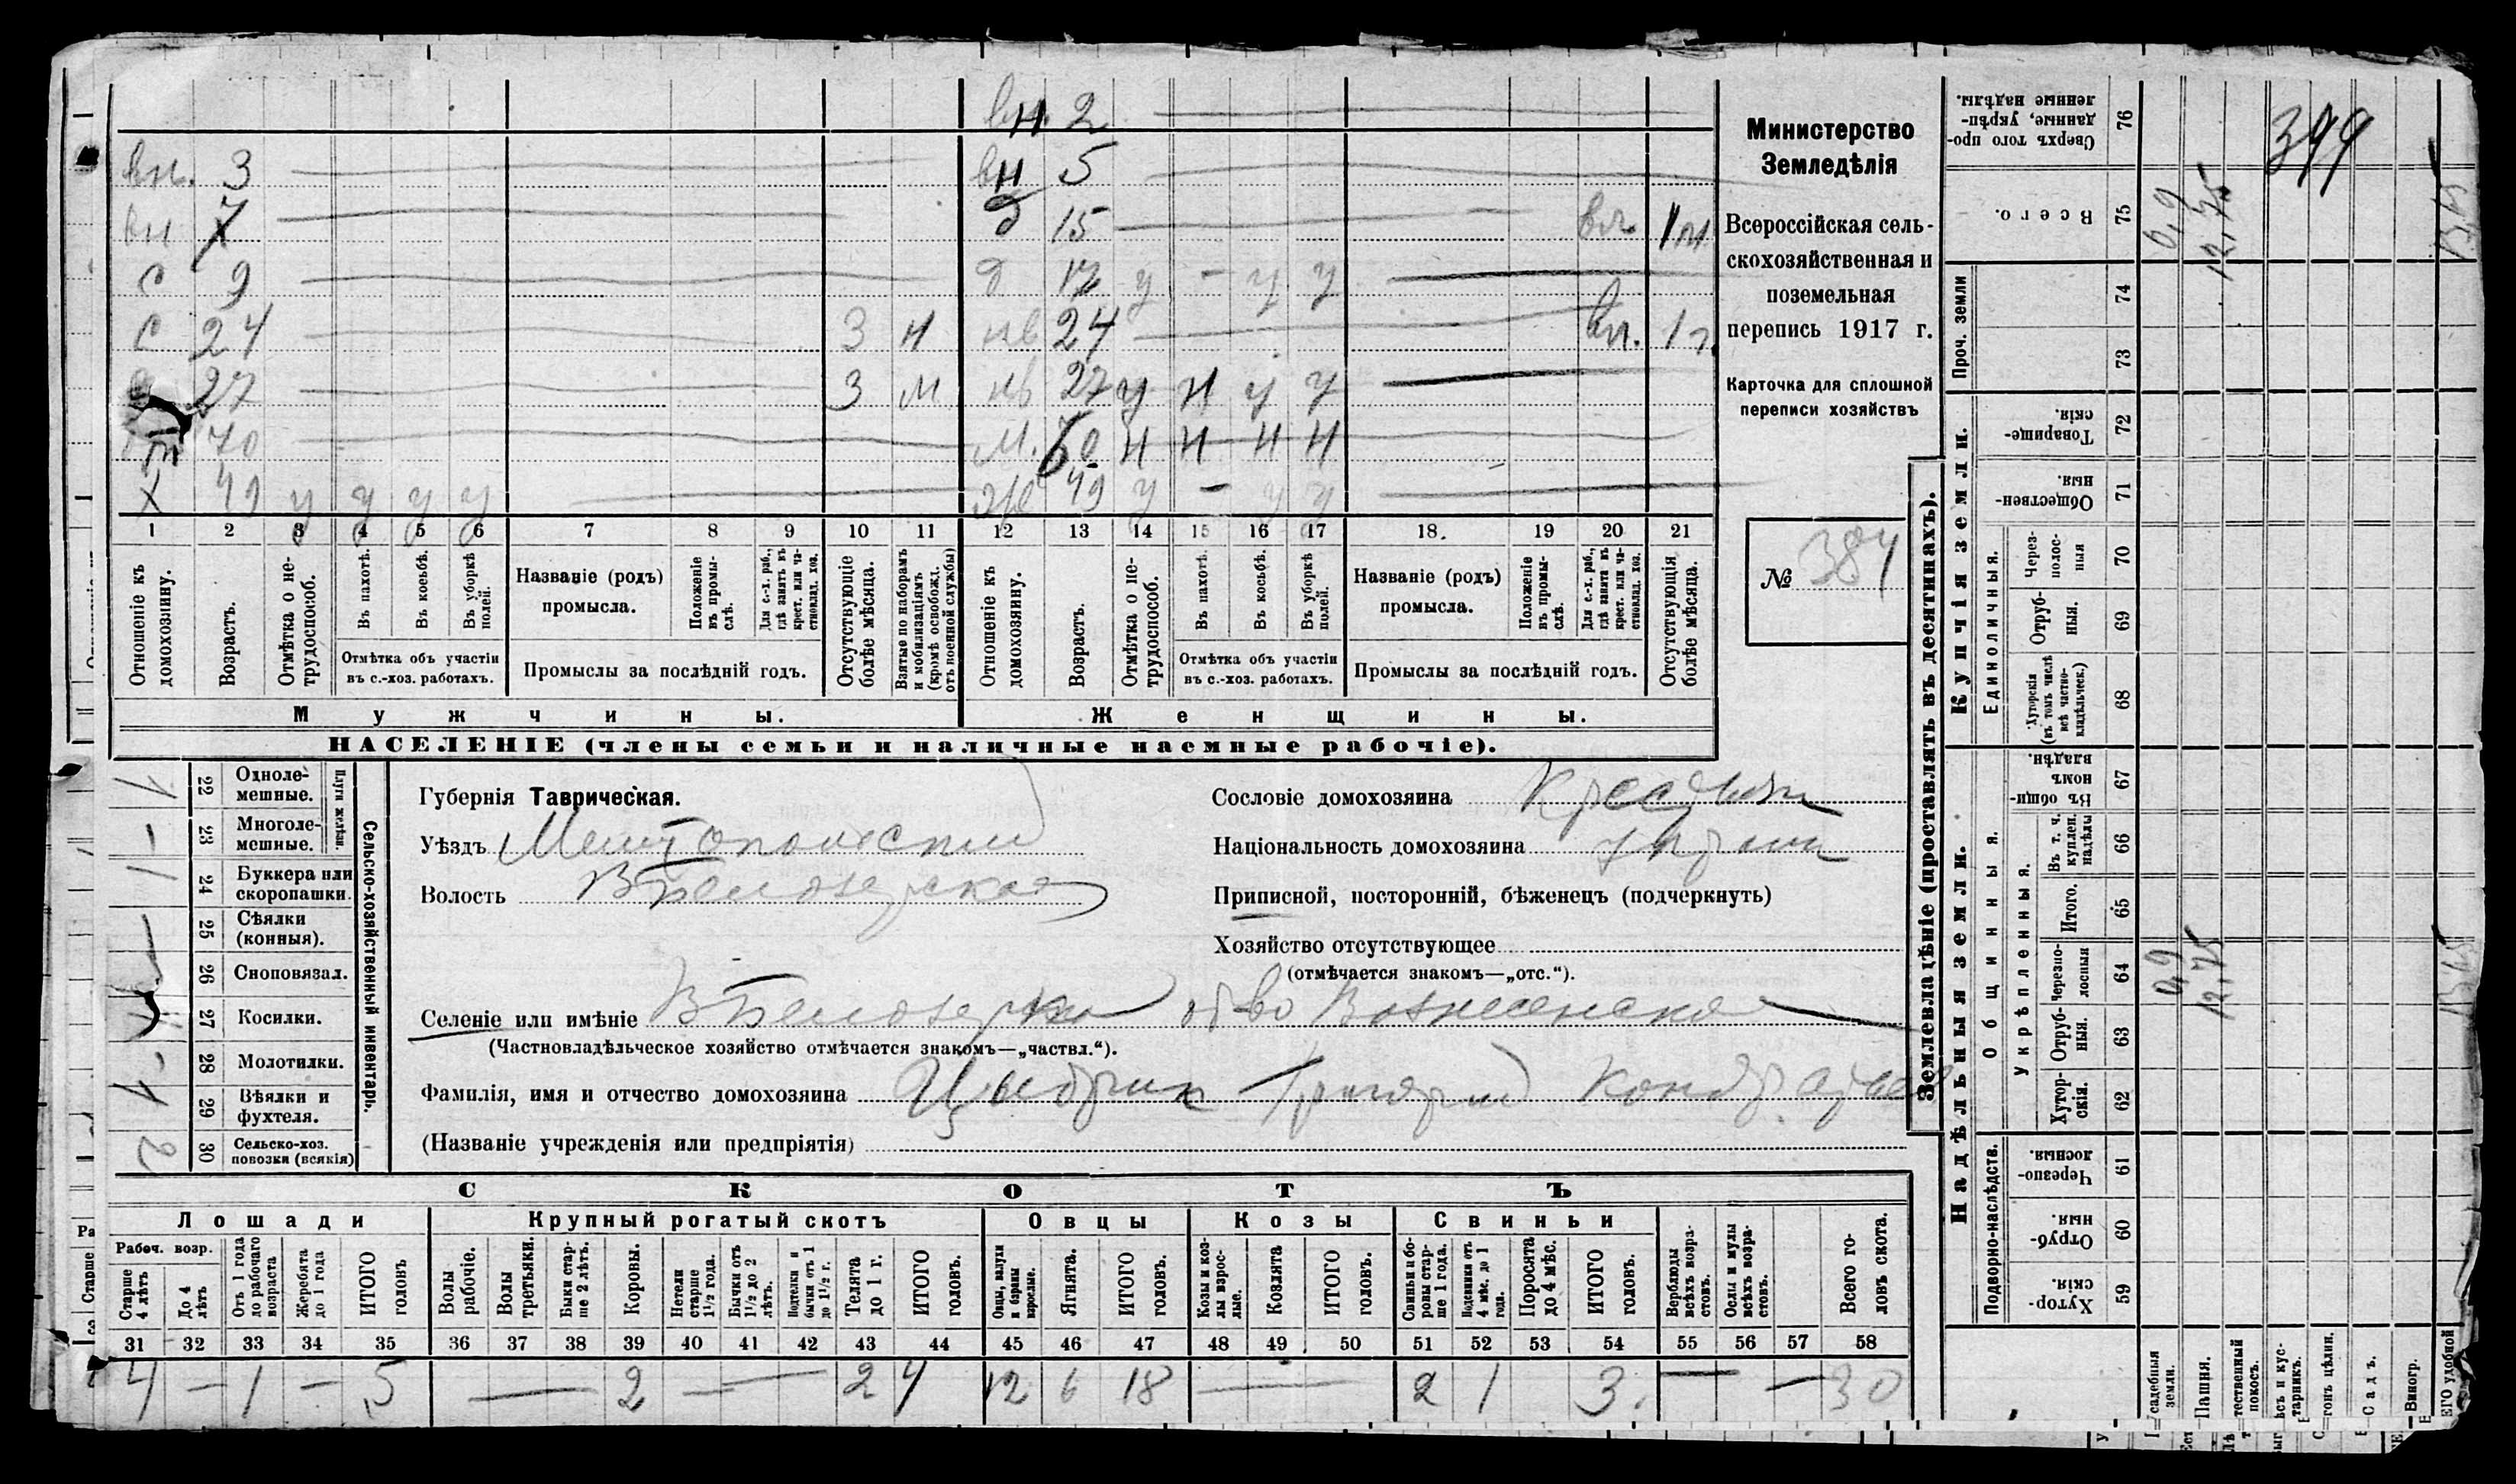 вн. 2
вн. 3 вн 5
вн 7 д 15 вл. 1 м.
с 9 д 17 у - у у
с 24 З Н нв 24 вл. 1 г.
с 27 З М нв 27 у Н у у
70 М. 60 Н Н Н Н
Х 49 у у у у Же 49 у - у у
1 2 3 4 5 6 7 8 9 10 11 12 13 14 15 16 17 18. 19 20 21
Отношеніе къ домохозяину.
Возрастъ.
Отмѣтка о не-трудоспособ.
Въ пахотѣ.
Въ косьбѣ.
Въ уборкѣ полей.
Отмѣтка объ участіи
въ с.-хоз. работахъ.
Названіе (родъ)
промысла.
Положеніе въ промы-слѣ.
Для с.-х. раб., гдѣ занятъ въ крест. или ча-стновлад. хоз.
Промыслы за послѣдній годъ.
Отсутствующіе болѣе мѣсяца.
Взятые по наборамъ и мобилизаціямъ (кромѣ освобожд. отъ военной службы)
Отношеніе къ домохозяину.
Возрастъ.
Отмѣтка о не-трудоспособ.
Въ пахотѣ.
Въ косьбѣ.
Въ уборкѣ полей.
Отмѣтка объ участіи
въ с.-хоз. работахъ.
Названіе (родъ)
промысла.
Положеніе въ промы-слѣ.
Для с.-х. раб., гдѣ заняты въ крест. или ча-стновлад. хоз.
Промыслы за послѣдній годъ.
Отсутствующія болѣе мѣсяца.
Мужчины. Женщины.
НАСЕЛЕНІЕ (члены семьи и наличные наемные рабочіе).
Министерство
Земледѣлія
Всероссійская сель-
скохозяйственная и
поземельная
перепись 1917 г.
Карточка для сплошной
переписи хозяйствъ
№ 384
Сельско-хозяйственный инвентарь.
Плуги желѣзн.
22 Одноле-мешные. 1
23 Многоле-мешные. -
24 Буккера или скоропашки. 1
25 Сѣялки (конныя).
26 Сноповязал.
27 Косилки.
28 Молотилки. -
29 Вѣялки и фухтеля. 1
30 Сельско-хоз. повозки (всякія) 2
Губернія Таврическая.
Уѣздъ Мелитопольскій
Волость В Белозерская
Сословіе домохозяина Крестьян
Національность домохозяина укр
Приписной, посторонній, бѣженецъ (подчеркнуть)
Хозяйство отсутствующее
(отмѣчается знакомъ—„отс.“).
Селеніе или имѣніе В Белозерка об-во Вознесенское
(Частновладѣльческое хозяйство отмѣчается знакомъ—„частвл.“).
Фамилія, имя и отчество домохозяина Цыбрик Григорий Кондратьев
(Названіе учрежденія или предпріятія)
СКОТЪ
Лошади Крупный рогатый скотъ Овцы Козы Свиньи
Рабоч. возр.
Старше 4 лѣтъ
До 4 лѣтъ
Отъ 1 года до рабочаго возраста
Жеребята до 1 года
ИТОГО головъ
Волы рабочіе.
Волы третьяки.
Быки стар-ше 2 лѣтъ.
Коровы.
Нетели старше 1½ года.
Бычки отъ 1½ до 2 лѣтъ.
Подтелки и бычки отъ 1 до 1½ г.
Телята до 1 г.
ИТОГО головъ.
Овцы, валухи и бараны взрослые.
Ягнята.
ИТОГО головъ.
Козы и коз-лы взрос-лые.
Козлята
ИТОГО головъ.
Свиньи и бо-ровы стар-ше 1 года.
Подсвинки отъ 4 мѣс. до 1 года.
Поросята до 4 мѣс.
ИТОГО головъ.
Верблюды всѣхъ возра-стовъ.
Ослы и мулы всѣхъ возра-стовъ.
Всего го-ловъ скота.
31 32 33 34 35 36 37 38 39 40 41 42 43 44 45 46 47 48 49 50 51 52 53 54 55 56 57 58
4 - 1 - 5 - 2 - - 2 4 12 6 18 - 2 1 3. - - 30
Землевладѣніе (проставлять въ десятинахъ).
Надѣльныя земли. Купчія земли. Проч. земли
Подворно-наслѣдств.
Общинныя.
Укрѣпленныя.
Единоличныя.
59 Хутор-скія.
60 Отруб-ныя.
61 Черезпо-лосныя.
62 Хутор-скія.
63 Отруб-ныя.
64 Черезпо-лосныя 0,9 12,75
65 Итого.
66 Въ т. ч. куплен. надѣлы
67 Въ общи-номъ владѣн.
68 Хуторскія (въ томъ числѣ всѣ частно-владѣльческ.)
69 Отруб-ныя.
70 Через-полос-ныя
71 Обществен-ныя.
72 Товарище-скія.
73
74
75 Всего. 0,9 12,75
76 Сверхъ того про-данные, укрѣп-ленные надѣлы.
399
Усадебныя земли.
Пашня.